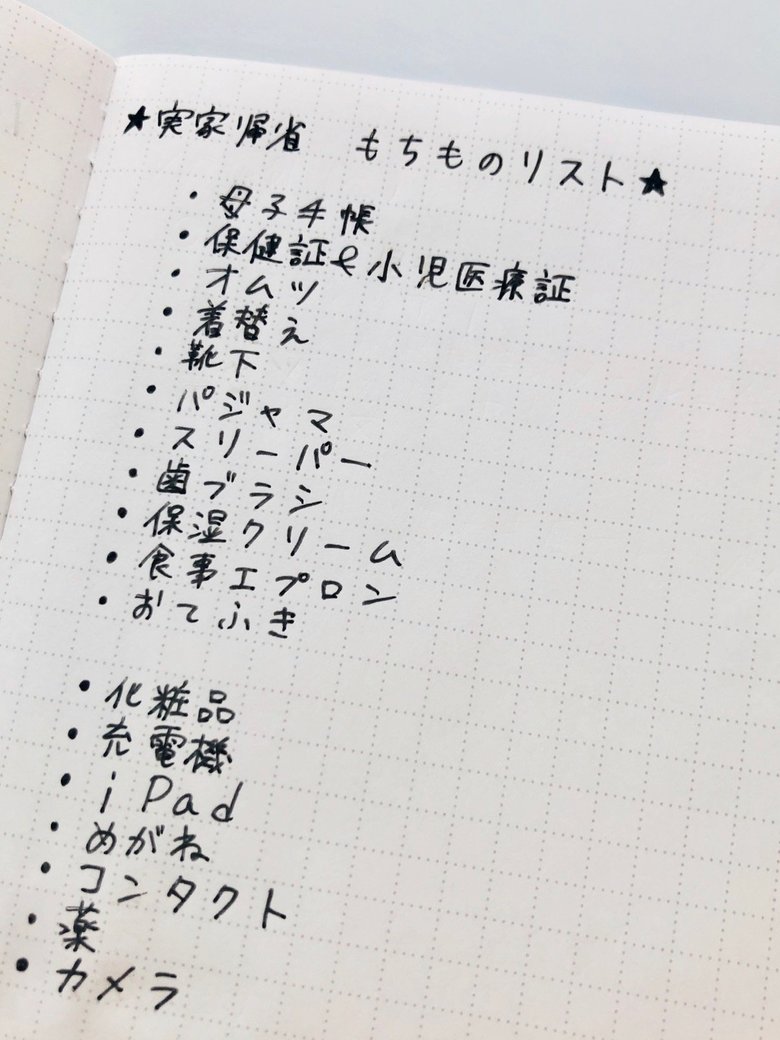 ★実家帰省 もちものリスト★
・母子手帳
・保健証&小児医療証
・オムツ
・着替え
・靴下
・パジャマ
・スリーパー
・歯ブラシ
・保湿クリーム
・食事エプロン
・おてふき
・化粧品
・充電機
・iPad
・めがね
・コンタクト
・薬
・カメラ